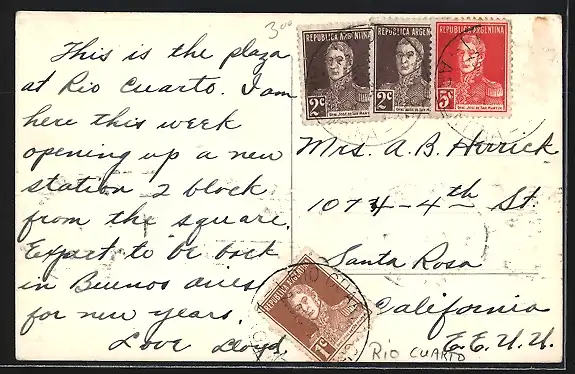 300
This is the plaza
at Rio Cuarto. I am
here this week
opening up a new
station 2 block
from the square.
Expect to be back
in Buenos aires
for new years.
Love Lloyd.
REPUBLICA ARGENTINA
2c
GRAL JOSE DE SAN MARTIN
REPUBLICA ARGEN
2c
REPUBLICA ARGENTINA
5c
GRAL JOSE DE SAN MARTIN
Mrs. A. B. Herrick
1074-4th St.
Santa Rosa
California
E.E.U.U.
REPUBLICA ARGENTINA
1c
RIO CUARTO